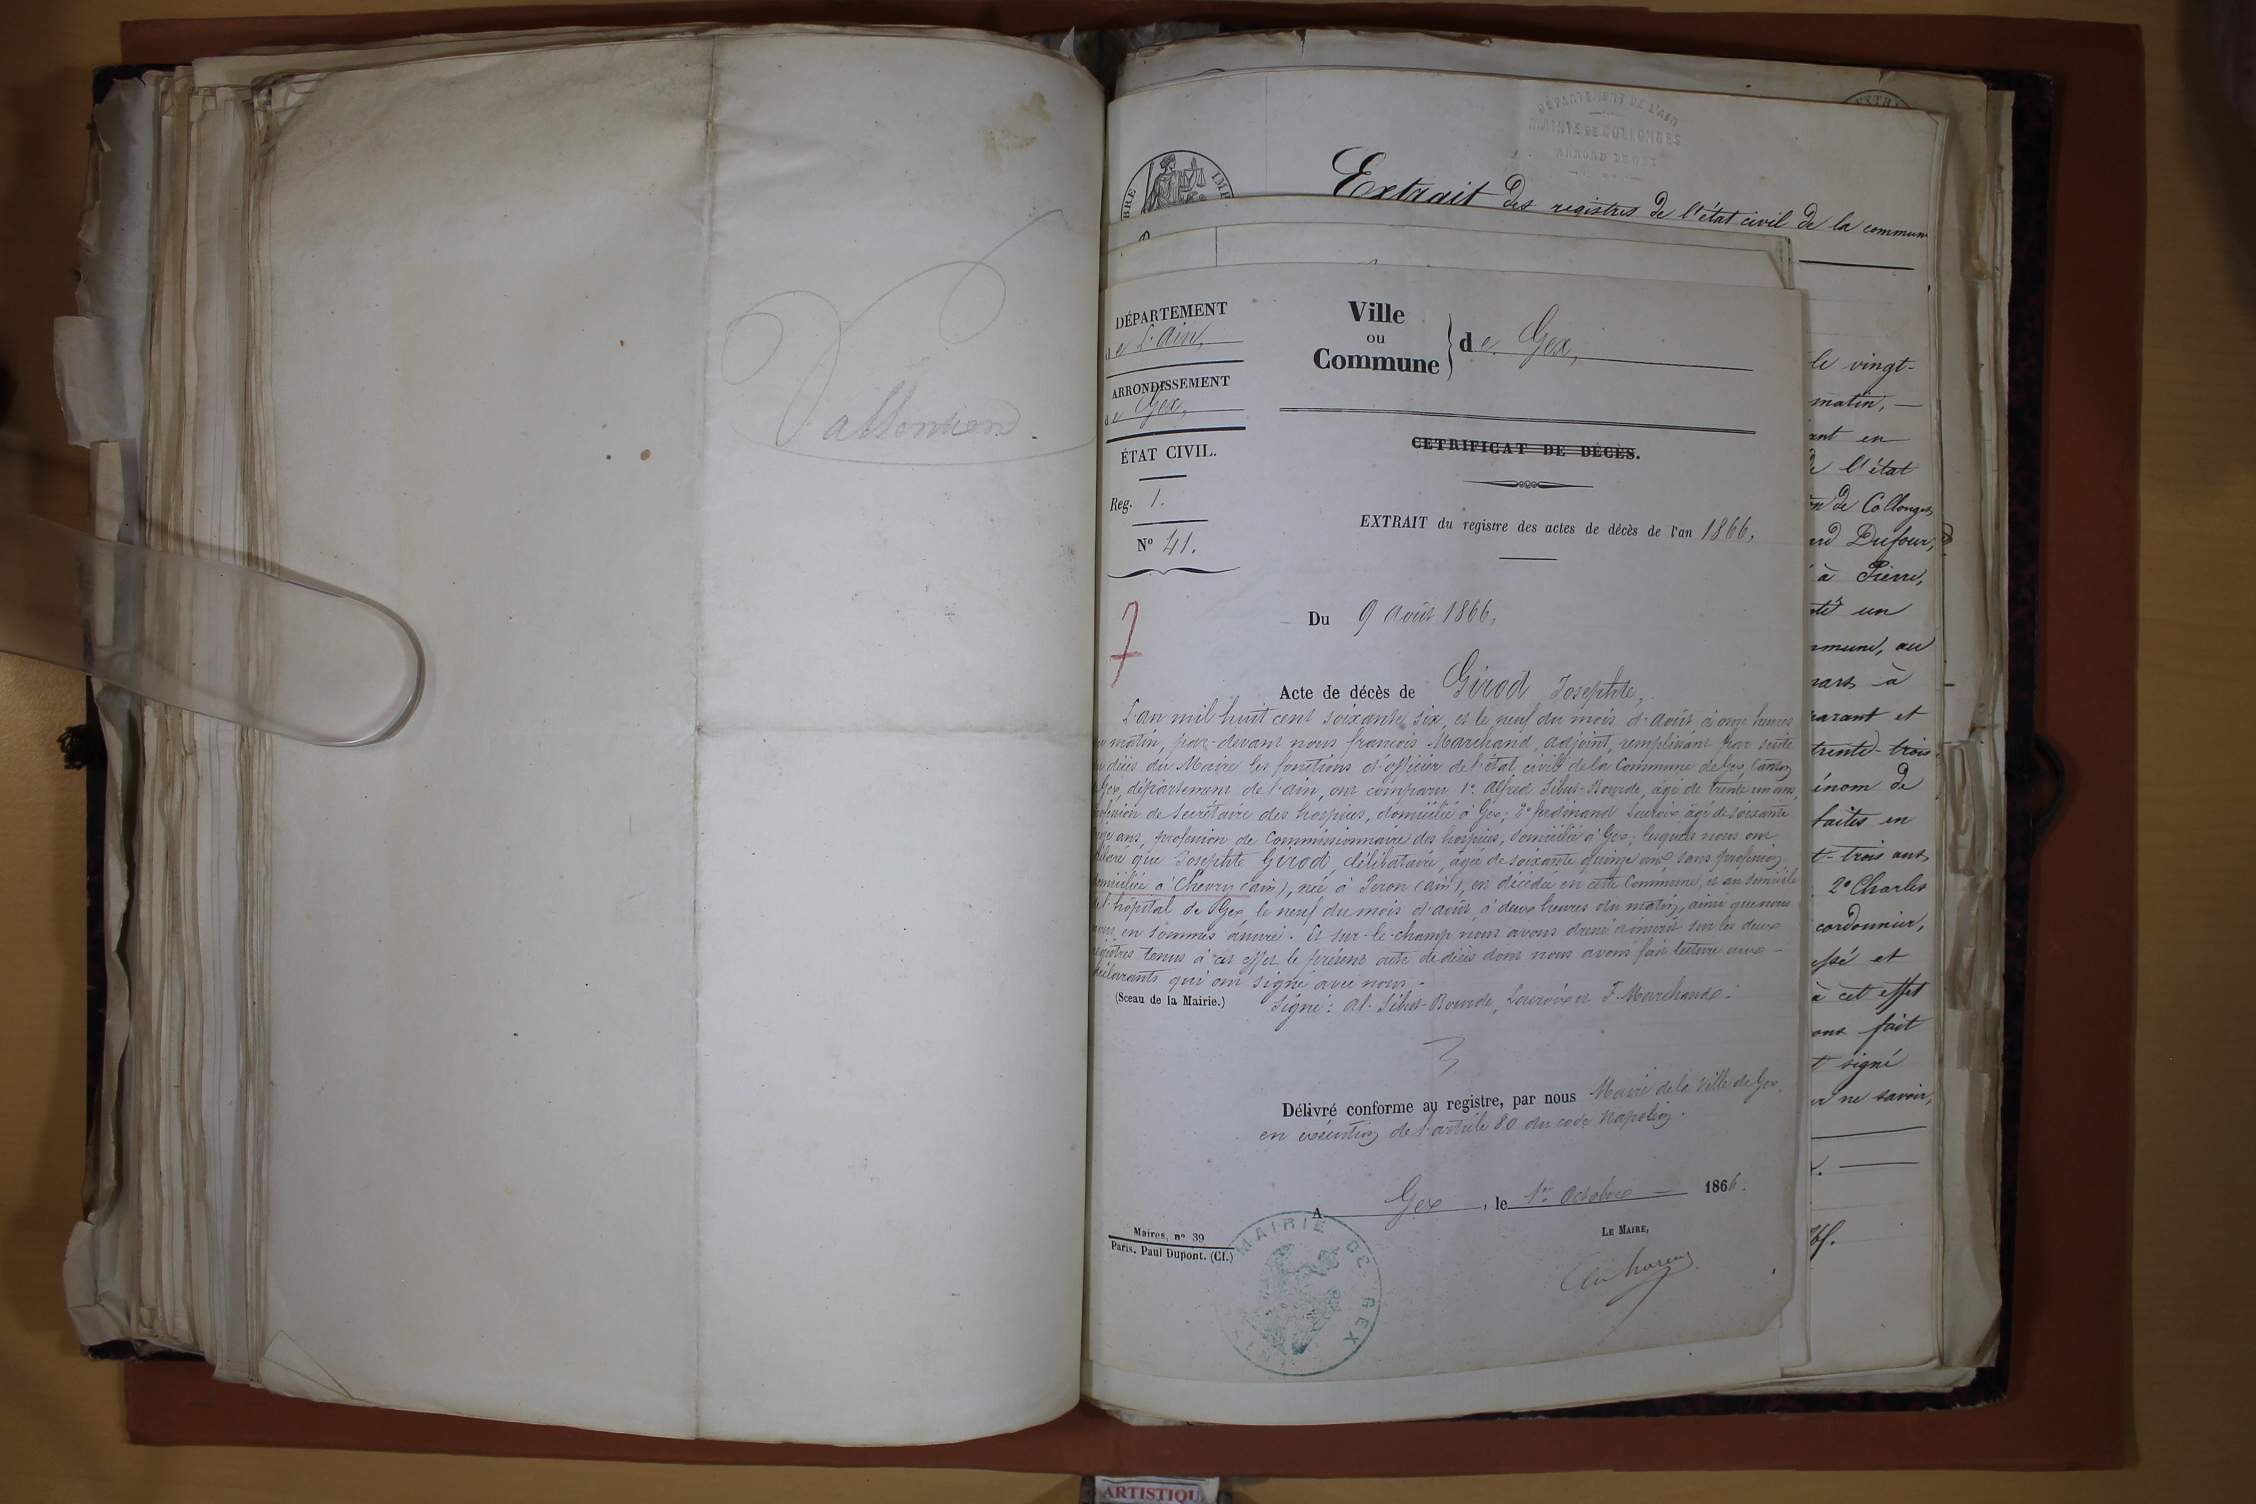 Vallentien
DÉPARTEMENT DE L'AIN
MAIRIE DE COLLONGES
ARROND. DE GEX
Extrait des registres de l'état civil de la commun
DÉPARTEMENT
de L'Ain,
ARRONDISSEMENT
de Gex,
ÉTAT CIVIL.
Reg. 1.
N° 41.
7
Ville
ou
Commune
de Gex,
CETRIFICAT DE DÉCÈS.
EXTRAIT du registre des actes de décès de l'an 1866,
Du 9 Août 1866,
Acte de décès de Girod Josephte,
L'an mil huit cent soixante six, et le neuf du mois d'Août à onze heures
matin, par-devant nous françois Marchand, adjoint, remplissant par suite
décès du Maire les fonctions d'officier de l'état civil de la Commune de Gex, Canton
Gex, département de l'ain, ont comparu 1° Alfred Sibut-Bourde, âgé de trente un ans,
profession de Secrétaire des hospices, domicilié à Gex; 2° ferdinand Lacroix âgé de soixante
ans, profession de Commissionnaire des hospices, domicilié à Gex; lesquels nous ont
déclaré que Josephte Girod, Célibataire, âgée de soixante quinze ans sans profession
domiciliée à Chevry (ain), née à Peron (ain), est décédée en cette Commune, et au domicile
de l'hôpital de Gex, le neuf du mois d'août à deux heures du matin, ainsi que nous
nous en sommes assuré. Et sur-le-champ nous avons dressé et inscrit sur les deux
registres tenus à cet effet le présent acte de décès dont nous avons fait lecture aux
déclarants qui ont signé avec nous.
(Sceau de la Mairie.) Signé: Al. Sibut-Bourde, Lacroix et F. Marchand.
Délivré conforme au registre, par nous Maire de la Ville de Gex
en exécution de l'article 80 du code Napoléon.
A Gex, le 1er Octobre 1866.
LE MAIRE,
Maires, n° 39
Paris. Paul Dupont. (Cl.)
MAIRIE DE GEX
le vingt-
matin, —
ant en
de l'état
n de Collonges
rd Dufour,
à Pierre,
té un
mmune, au
mars à
parant et
trente-trois
énom de
faites en
t-trois ans
2° Charles
cordonnier,
ssé et
à cet effet
ons fait
t signé
ur ne savoir,
ARTISTIQU